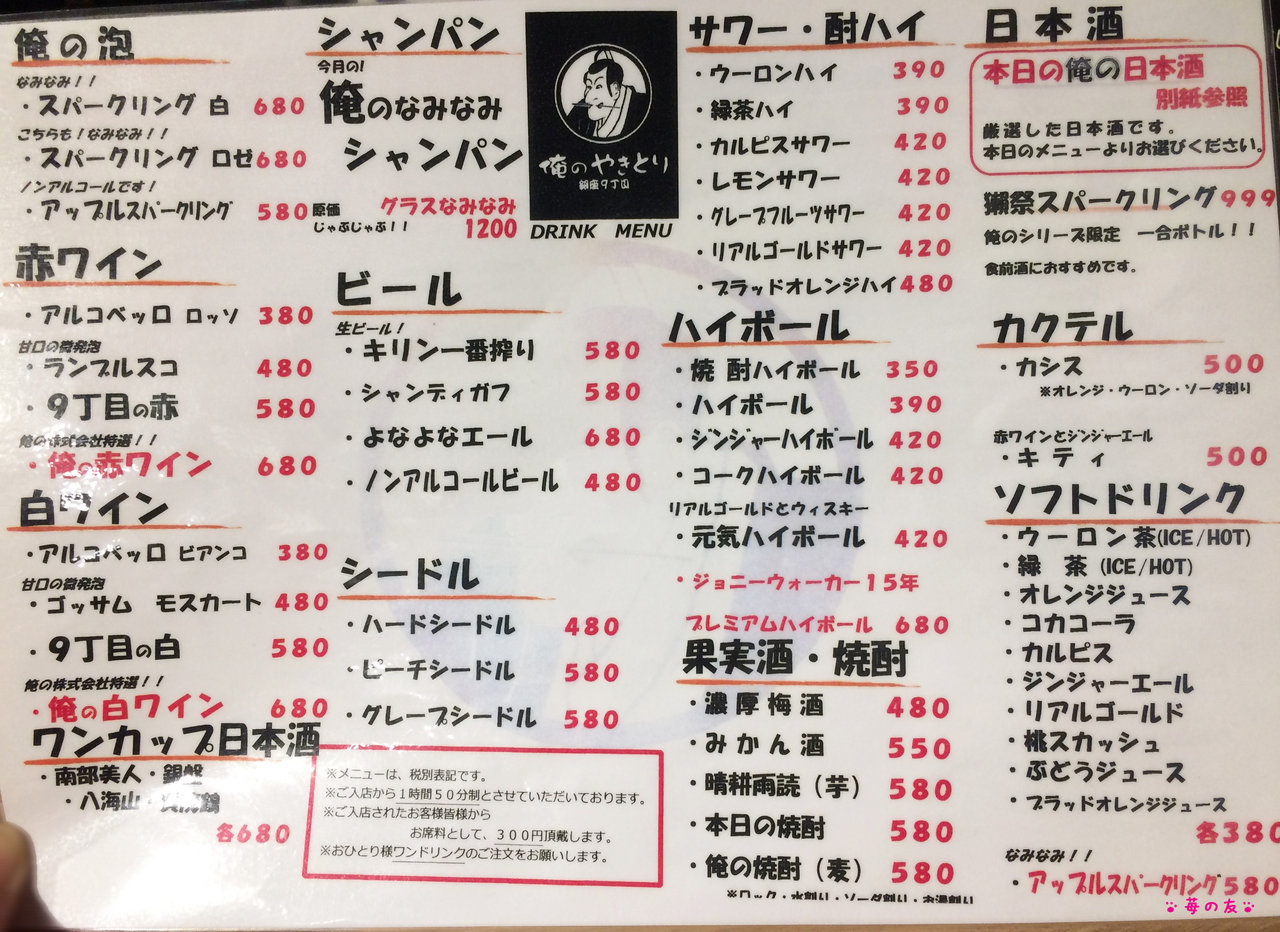 俺の泡
なみなみ！！
・スパークリング 白 680
こちらも！なみなみ！！
・スパークリング ロゼ 680
ノンアルコールです！
・アップルスパークリング 580
赤ワイン
・アルコベッロ ロッソ 380
甘口の微発泡
・ランブルスコ 480
・9丁目の赤 580
俺の株式会社特選！！
・俺の赤ワイン 680
白ワイン
・アルコベッロ ビアンコ 380
甘口の微発泡
・ゴッサム モスカート 480
・9丁目の白 580
俺の株式会社特選！！
・俺の白ワイン 680
ワンカップ日本酒
・南部美人・銀盤
・八海山・
各680
シャンパン
今月の！
俺のなみなみ
シャンパン
原価 グラスなみなみ
じゃぶじゃぶ！！ 1200
ビール
生ビール！
・キリン一番搾り 580
・シャンディガフ 580
・よなよなエール 680
・ノンアルコールビール 480
シードル
・ハードシードル 480
・ピーチシードル 580
・グレープシードル 580
※メニューは、税別表記です。
※ご入店から１時間５０分制とさせていただいております。
※ご入店されたお客様皆様から
お席料として、３００円頂戴します。
※おひとり様ワンドリンクのご注文をお願いします。
俺のやきとり
銀座9丁目
DRINK MENU
サワー・酎ハイ
・ウーロンハイ 390
・緑茶ハイ 390
・カルピスサワー 420
・レモンサワー 420
・グレープフルーツサワー 420
・リアルゴールドサワー 420
・ブラッドオレンジハイ 480
ハイボール
・焼酎ハイボール 350
・ハイボール 390
・ジンジャーハイボール 420
・コークハイボール 420
リアルゴールドとウィスキー
・元気ハイボール 420
・ジョニーウォーカー15年
プレミアムハイボール 680
果実酒・焼酎
・濃厚梅酒 480
・みかん酒 550
・晴耕雨読（芋） 580
・本日の焼酎 580
・俺の焼酎（麦） 580
※ロック・水割り・ソーダ割り・お湯割り
日本酒
本日の俺の日本酒
別紙参照
厳選した日本酒です。
本日のメニューよりお選びください。
獺祭スパークリング 999
俺のシリーズ限定 一合ボトル！！
食前酒におすすめです。
カクテル
・カシス 500
※オレンジ・ウーロン・ソーダ割り
赤ワインとジンジャーエール
・キティ 500
ソフトドリンク
・ウーロン茶(ICE/HOT)
・緑 茶 (ICE/HOT)
・オレンジジュース
・コカコーラ
・カルピス
・ジンジャーエール
・リアルゴールド
・桃スカッシュ
・ぶどうジュース
・ブラッドオレンジジュース
各380
なみなみ！！
・アップルスパークリング 580
苺の友